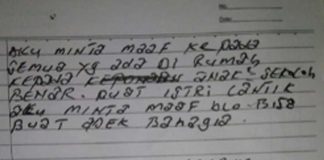 No.
Date.
AKU MINTA MAAF KEPADA
SEMUA Yg ADA DI RUMAH
KEPADA ANAK² SEKOLAH
BENAR. BUAT ISTRI CANTIK
AKU MINTA MAAF blo. BISA
BUAT ADEK BAHAGIA.